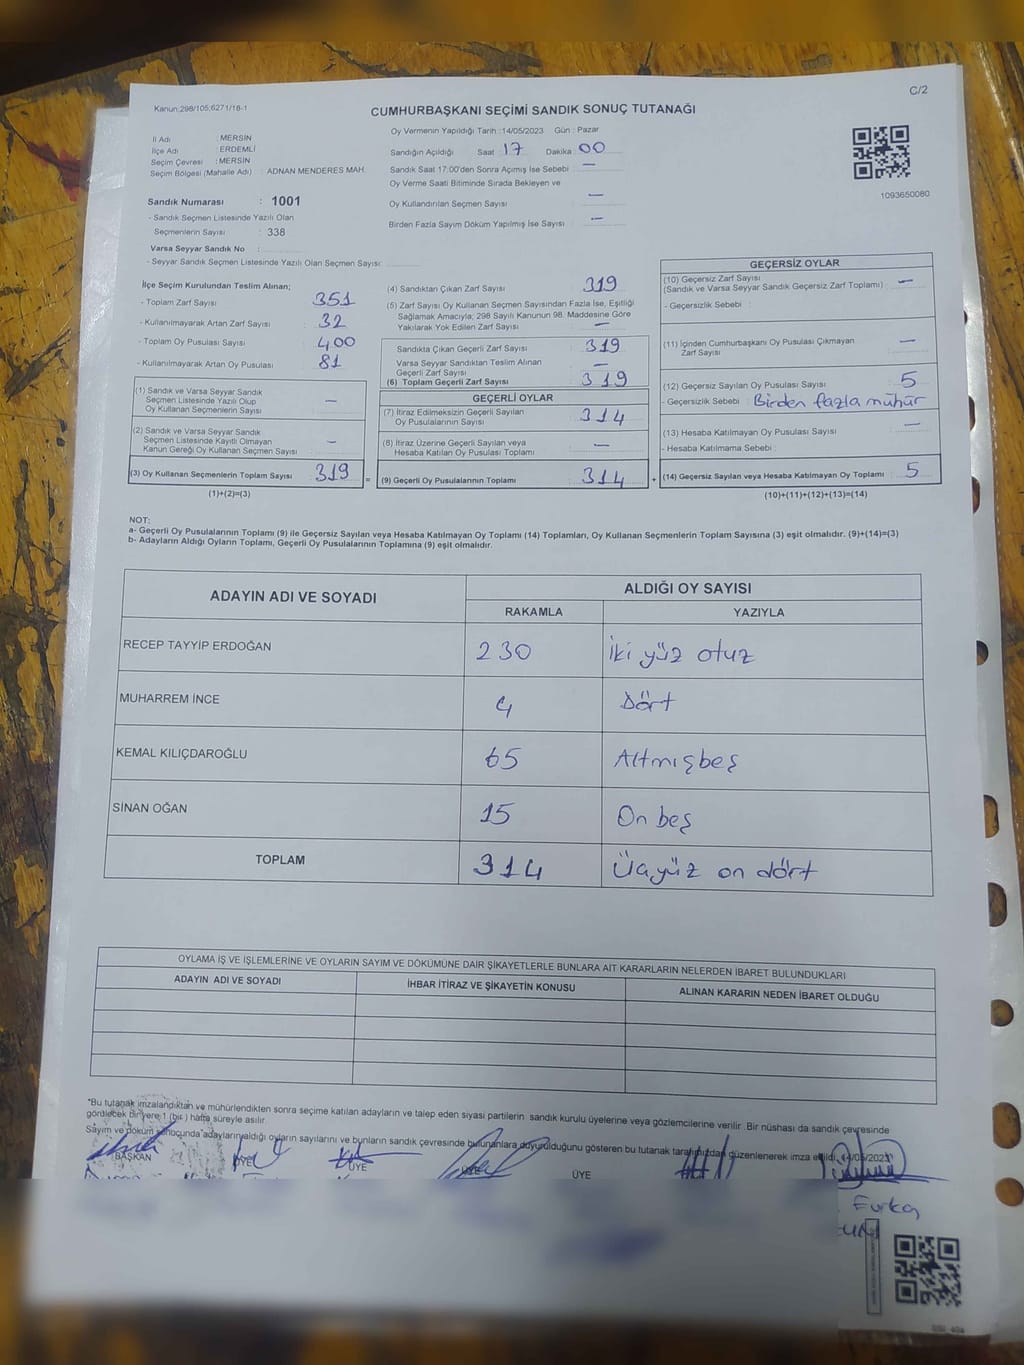 Kanun:298/105;6271/18-1
C/2
CUMHURBAŞKANI SEÇİMİ SANDIK SONUÇ TUTANAĞI
İl Adı : MERSİN
İlçe Adı : ERDEMLİ
Seçim Çevresi : MERSİN
Seçim Bölgesi (Mahalle Adı) : ADNAN MENDERES MAH.
Sandık Numarası : 1001
- Sandık Seçmen Listesinde Yazılı Olan
Seçmenlerin Sayısı : 338
Varsa Seyyar Sandık No :
- Seyyar Sandık Seçmen Listesinde Yazılı Olan Seçmen Sayısı:
Oy Vermenin Yapıldığı Tarih :14/05/2023 Gün : Pazar
Sandığın Açıldığı Saat 17 Dakika 00
Sandık Saat 17:00'den Sonra Açımış İse Sebebi : —
Oy Verme Saati Bitiminde Sırada Bekleyen ve
Oy Kullandırılan Seçmen Sayısı : —
Birden Fazla Sayım Döküm Yapılmış İse Sayısı : —
1093650080
İlçe Seçim Kurulundan Teslim Alınan;
- Toplam Zarf Sayısı : 351
- Kullanılmayarak Artan Zarf Sayısı : 32
- Toplam Oy Pusulası Sayısı : 400
- Kullanılmayarak Artan Oy Pusulası : 81
(1) Sandık ve Varsa Seyyar Sandık
Seçmen Listesinde Yazılı Olup
Oy Kullanan Seçmenlerin Sayısı : —
(2) Sandık ve Varsa Seyyar Sandık
Seçmen Listesinde Kayıtlı Olmayan
Kanun Gereği Oy Kullanan Seçmen Sayısı : —
(3) Oy Kullanan Seçmenlerin Toplam Sayısı : 319
(1)+(2)=(3)
=
(4) Sandıktan Çıkan Zarf Sayısı : 319
(5) Zarf Sayısı Oy Kullanan Seçmen Sayısından Fazla İse, Eşitliği
Sağlamak Amacıyla; 298 Sayılı Kanunun 98. Maddesine Göre
Yakılarak Yok Edilen Zarf Sayısı : —
Sandıkta Çıkan Geçerli Zarf Sayısı : 319
Varsa Seyyar Sandıktan Teslim Alınan
Geçerli Zarf Sayısı : —
(6) Toplam Geçerli Zarf Sayısı : 319
GEÇERLİ OYLAR
(7) İtiraz Edilmeksizin Geçerli Sayılan
Oy Pusulalarının Sayısı : 314
(8) İtiraz Üzerine Geçerli Sayılan veya
Hesaba Katılan Oy Pusulası Toplamı : —
(9) Geçerli Oy Pusulalarının Toplamı : 314
+
GEÇERSİZ OYLAR
(10) Geçersiz Zarf Sayısı
(Sandık ve Varsa Seyyar Sandık Geçersiz Zarf Toplamı) : —
- Geçersizlik Sebebi :
(11) İçinden Cumhurbaşkanı Oy Pusulası Çıkmayan
Zarf Sayısı : —
(12) Geçersiz Sayılan Oy Pusulası Sayısı : 5
- Geçersizlik Sebebi : Birden fazla mühür
(13) Hesaba Katılmayan Oy Pusulası Sayısı : —
- Hesaba Katılmama Sebebi :
(14) Geçersiz Sayılan veya Hesaba Katılmayan Oy Toplamı : 5
(10)+(11)+(12)+(13)=(14)
NOT:
a- Geçerli Oy Pusulalarının Toplamı (9) ile Geçersiz Sayılan veya Hesaba Katılmayan Oy Toplamı (14) Toplamları, Oy Kullanan Seçmenlerin Toplam Sayısına (3) eşit olmalıdır. (9)+(14)=(3)
b- Adayların Aldığı Oyların Toplamı, Geçerli Oy Pusulalarının Toplamına (9) eşit olmalıdır.
ADAYIN ADI VE SOYADI
ALDIĞI OY SAYISI
RAKAMLA YAZIYLA
RECEP TAYYİP ERDOĞAN 230 İki yüz otuz
MUHARREM İNCE 4 Dört
KEMAL KILIÇDAROĞLU 65 Altmışbeş
SİNAN OĞAN 15 On beş
TOPLAM 314 Üçyüz on dört
OYLAMA İŞ VE İŞLEMLERİNE VE OYLARIN SAYIM VE DÖKÜMÜNE DAİR ŞİKAYETLERLE BUNLARA AİT KARARLARIN NELERDEN İBARET BULUNDUKLARI
ADAYIN ADI VE SOYADI İHBAR İTİRAZ VE ŞİKAYETİN KONUSU ALINAN KARARIN NEDEN İBARET OLDUĞU
*Bu tutanak imzalandıktan ve mühürlendikten sonra seçime katılan adayların ve talep eden siyasi partilerin sandık kurulu üyelerine veya gözlemcilerine verilir. Bir nüshası da sandık çevresinde
görülecek bir yere 1 (bir) hafta süreyle asılır.
Sayım ve döküm sonucunda adayların aldığı oyların sayılarını ve bunların sandık çevresinde bulunanlara duyurulduğunu gösteren bu tutanak tarafımızdan düzenlenerek imza edildi. 14/05/2023
BAŞKAN ÜYE ÜYE ÜYE ÜYE
Furka